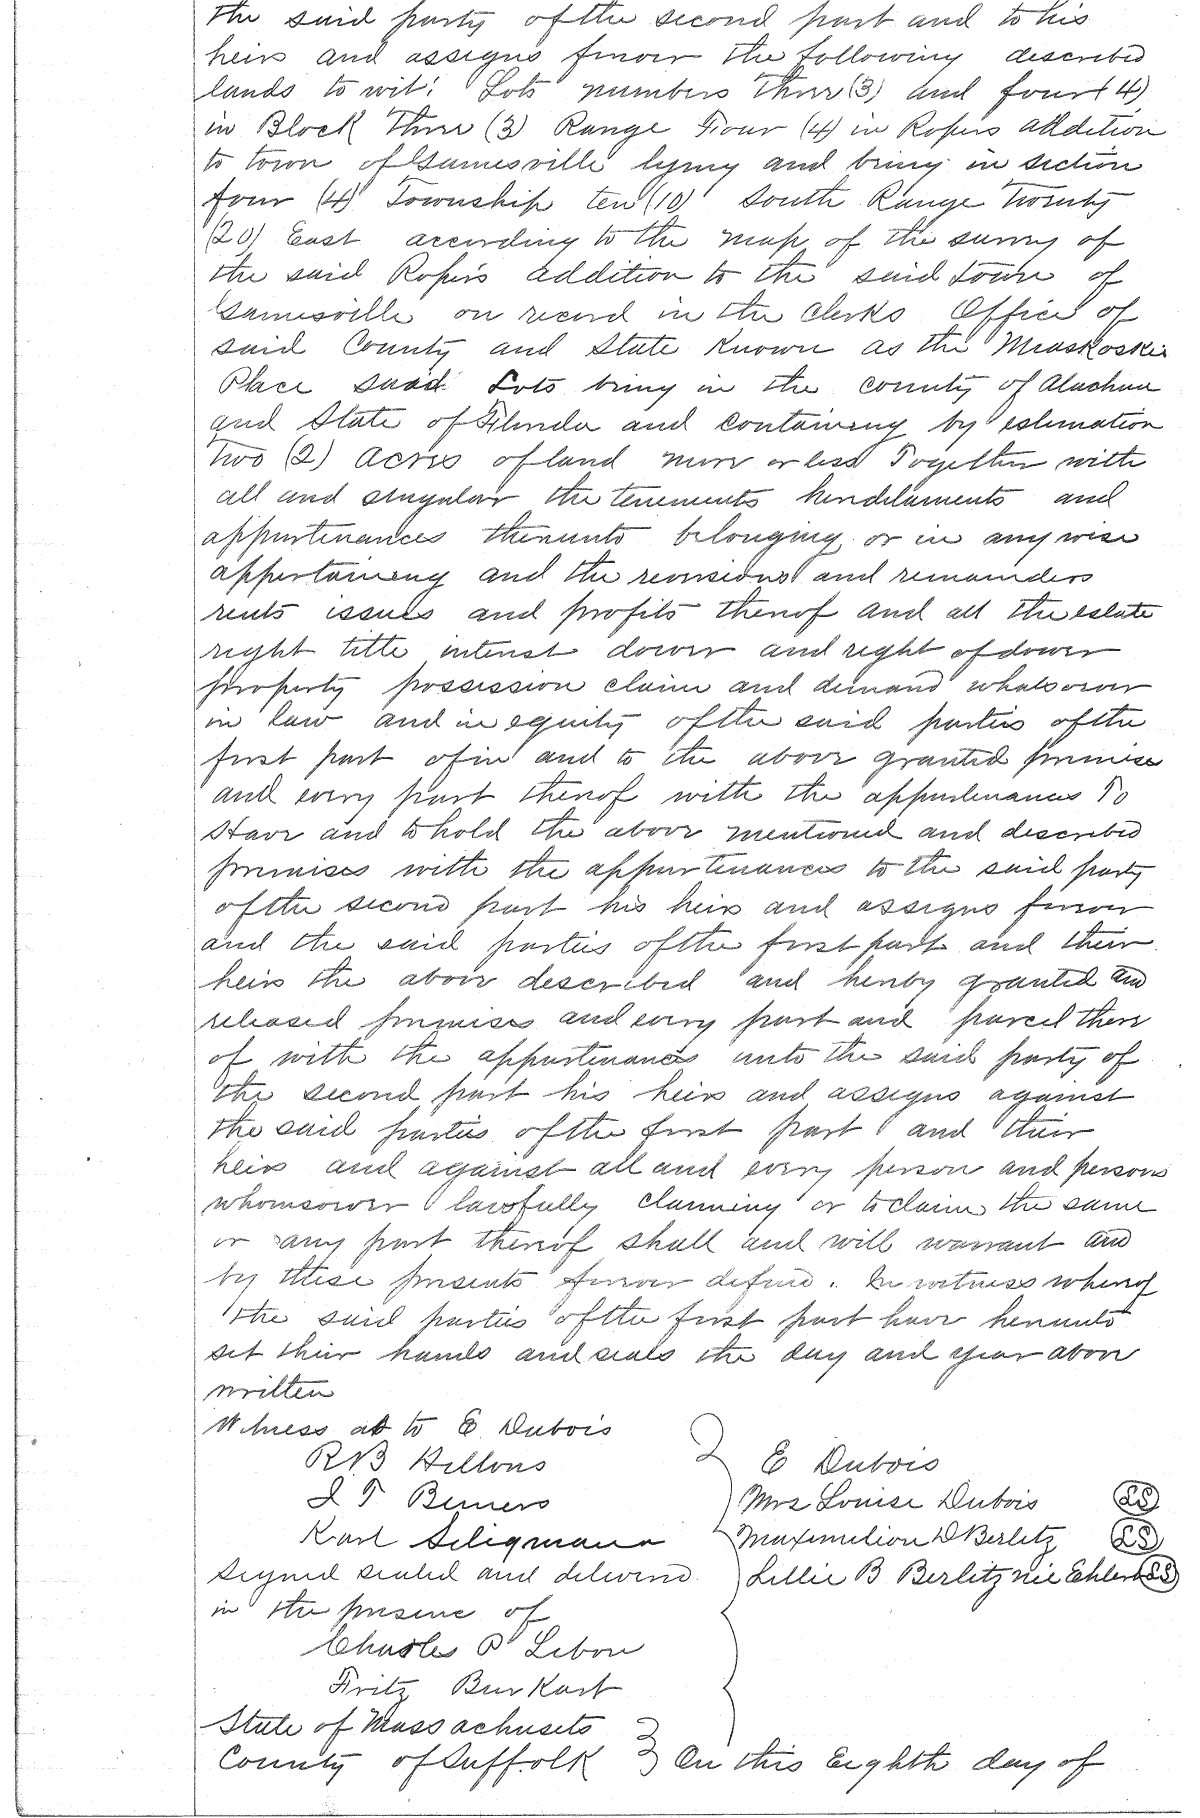 the said party of the second part and to his
heirs and assigns forever the following described
lands to wit: Lots numbers Three (3) and four (4)
in Block Three (3) Range Four (4) in Ropers addition
to town of Gainesville lying and being in section
four (4) Township ten (10) South Range Twenty
(20) East according to the map of the survey of
the said Roper's addition to the said town of
Gainesville on record in the Clerks Office of
said County and State Known as the
Place said Lots being in the county of Alachua
and State of Florida and containing by estimation
Two (2) acres of land more or less Together with
all and singular the tenements hereditaments and
appurtenances thereunto belonging or in anywise
appertaining and the reversions and remainders
rents issues and profits thereof and all the estate
right title interest dower and right of dower
property possession claim and demand whatsoever
in law and in equity of the said parties of the
first part of in and to the above granted premises
and every part thereof with the appurtenances To
Have and to hold the above mentioned and described
premises with the appurtenances to the said party
of the second part his heirs and assigns forever
and the said parties of the first part and their
heirs the above described and hereby granted and
released premises and every part and parcel there
of with the appurtenances unto the said party of
the second part his heirs and assigns against
the said parties of the first part and their
heirs and against all and every person and persons
whomsoever lawfully claiming or to claim the same
or any part thereof shall and will warrant and
by these presents forever defend. In witness whereof
the said parties of the first part have hereunto
set their hands and seals the day and year above
written
Witness as to E. Dubois
R B
E Dubois
I T
Mrs Louise Dubois LS
Karl Seligmann
Maximilion D Berlitz LS
Signed sealed and delivered
Lillie B Berlitz nie Ehlert LS
in the presence of
Charles P Lebon
Fritz Burkart
State of Massachusets
County of Suffolk } On this Eighth day of